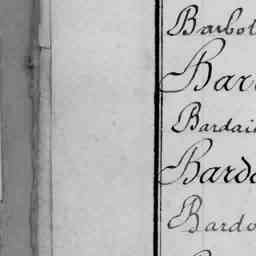 Barbot
Bar
Bardai
Barda
Bardo